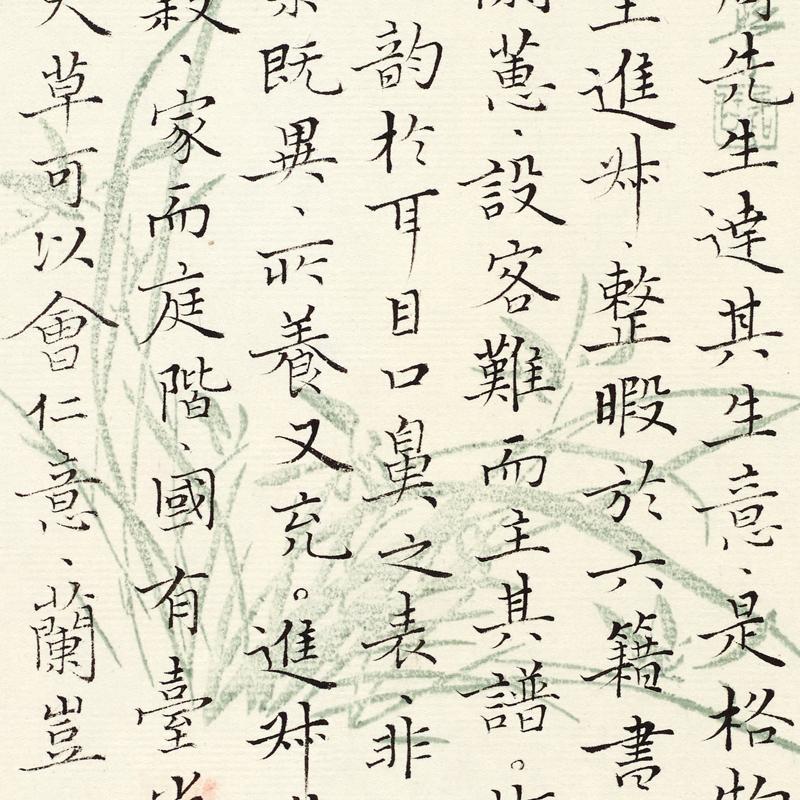 先生達其生意、是格物
進叔、整暇於六籍書
蕙、設客難而主其譜。
韵於耳目口鼻之表、非
既異、所養又充。進叔
、家而庭階、國有臺
草可以會仁意、蘭豈